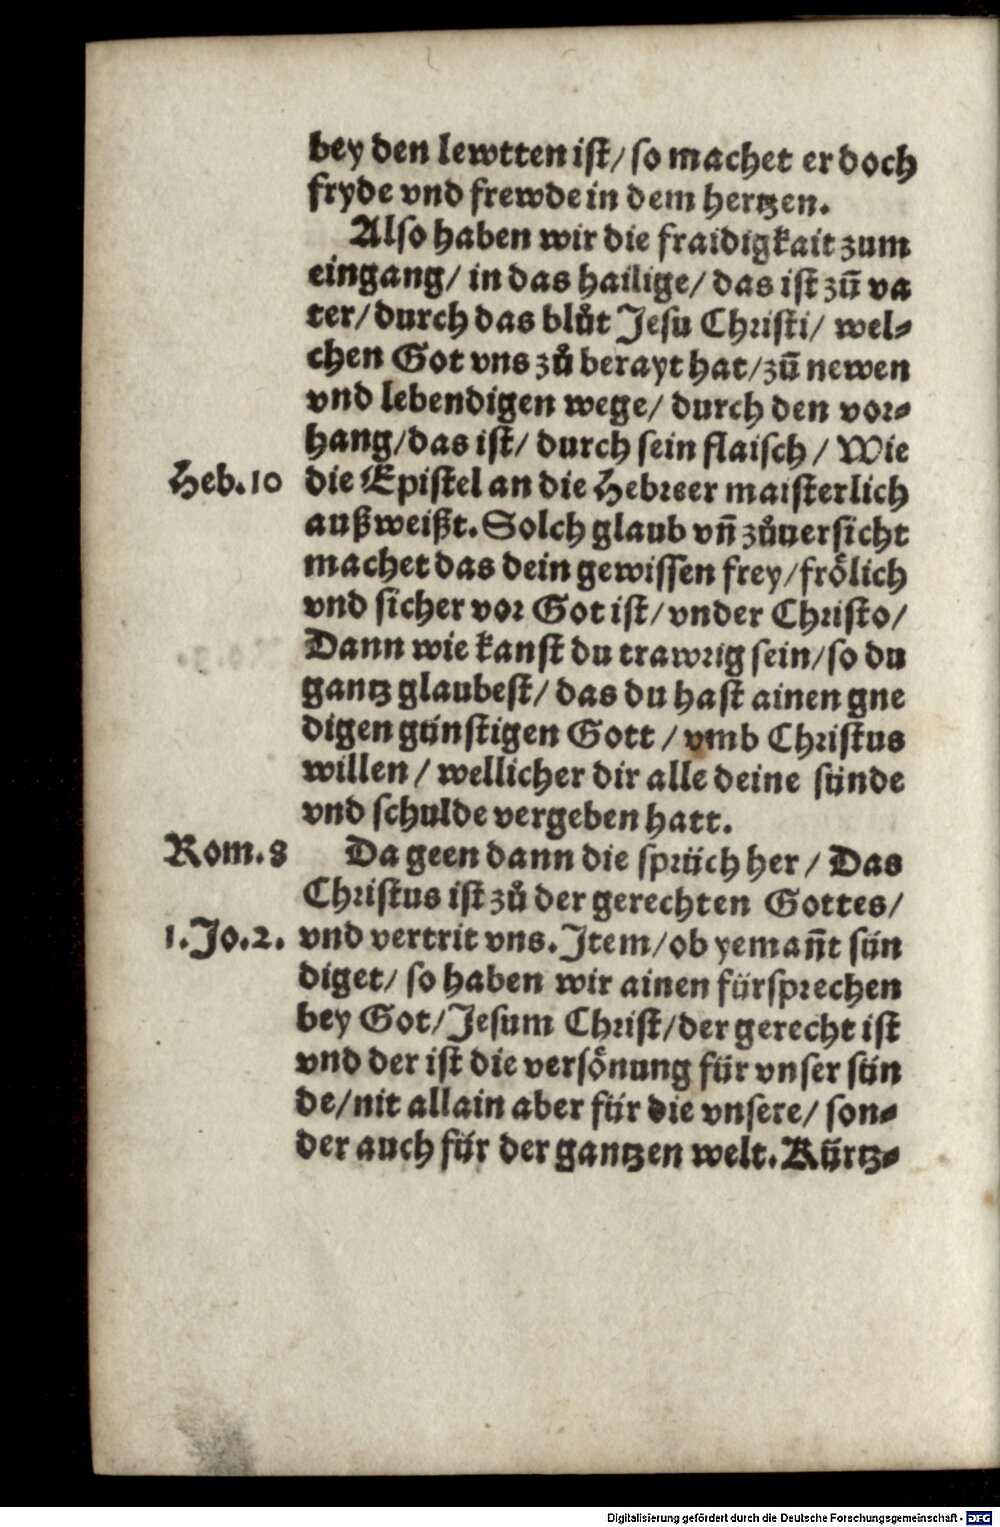 bey den lewtten ist/ so machet er doch
fryde vnd frewde in dem hertzen.
Also haben wir die fraidigkait zum
eingang/ in das hailige/ das ist zū va
ter/ durch das blůt Jesu Christi/ wel⸗
chen Got vns zů berayt hat/ zū newen
vnd lebendigen wege/ durch den vor⸗
hang/ das ist/ durch sein flaisch / Wie
Heb. 10 die Epistel an die Hebreer maisterlich
außweißt. Solch glaub vñ zůuersicht
machet das dein gewissen frey/ frölich
vnd sicher vor Got ist/ vnder Christo/
Dann wie kanst du trawrig sein/ so du
gantz glaubest/ das du hast ainen gne
digen günstigen Gott / vmb Christus
willen / wellicher dir alle deine sünde
vnd schulde vergeben hatt.
Rom. 8 Da geen dann die sprüch her / Das
Christus ist zů der gerechten Gottes/
1. Jo. 2. vnd vertrit vns. Item/ ob yemañt sün
diget/ so haben wir ainen fürsprechen
bey Got/ Jesum Christ/ der gerecht ist
vnd der ist die versönung für vnser sün
de/ nit allain aber für die vnsere/ son⸗
der auch für der gantzen welt. Kürtz⸗
Digitalisierung gefördert durch die Deutsche Forschungsgemeinschaft - DFG